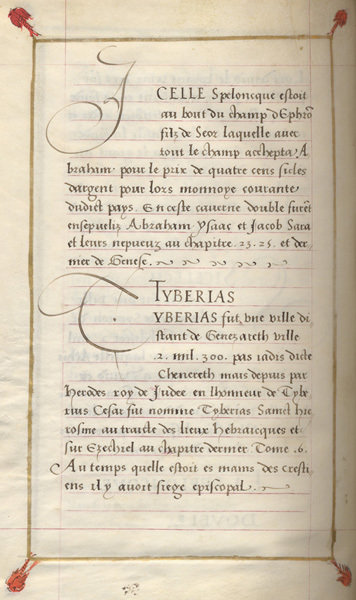 ICELLE Speloncque estoit
au bout du champ dEphrō
filz de Seor laquelle avec
tout le champ acchepta A
braham pour le prix de quatre cens sicles
dargent pour lors monnoye courante
dudict pays. En ceste caverne double furēt
ensepueliz Abraham Ysaac et Jacob Sara
et leurs nepueuz au chapitre. 23. 25. et der
nier de Genese.
TYBERIAS
TYBERIAS fut une ville di
stant de Genezareth ville
2. mil. 300. pas iadis dicte
Chenereth mais depuis par
Herodes roy de Judee en lhonneur de Tybe
rius Cesar fut nommee Tyberias Sainct Hie
rosme au traicte des lieux Hebraicques et
sur Ezechiel au chapitre dernier. Tome .6.
Au temps quelle estoit es mains des cresti
ens il y avoit siege episcopal.